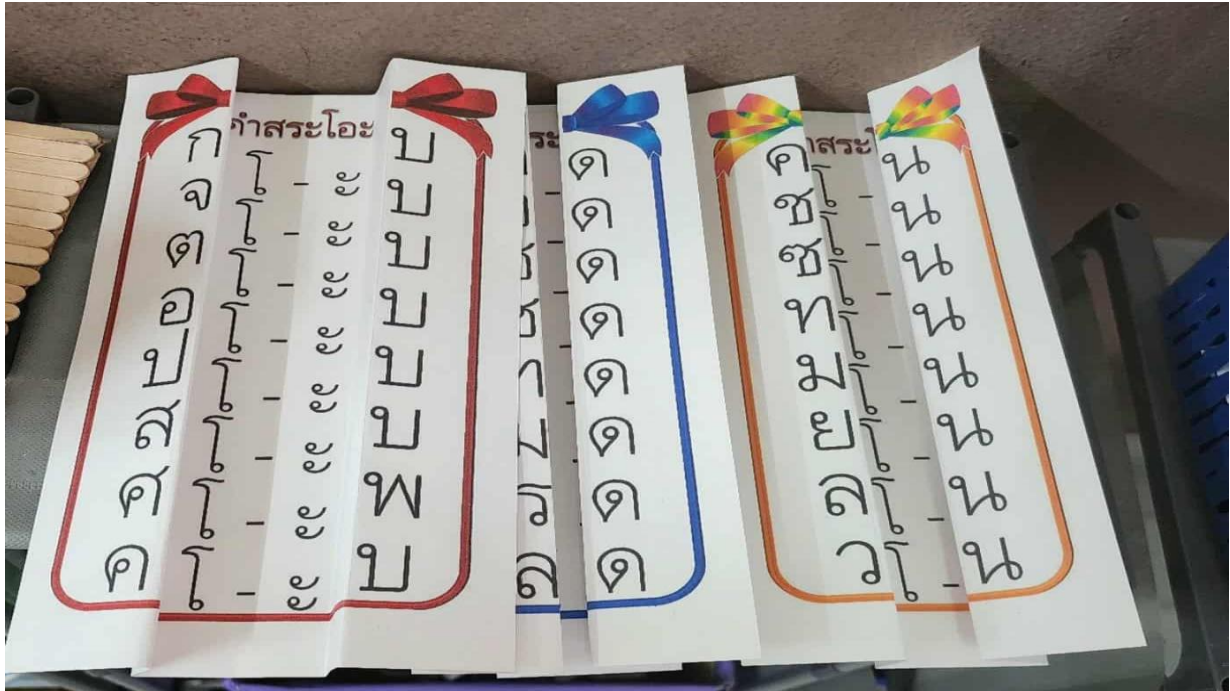 คำสระโอะ
ก โ - ะ บ
จ โ - ะ บ
ต โ - ะ บ
อ โ - ะ บ
ป โ - ะ บ
ส โ - ะ บ
ศ โ - ะ พ
ค โ - ะ บ
ระ
ด
ด
ด
ด
ด
ด
ร ด
ล ด
สระ
ค โ - น
ช โ - น
ซ โ - น
ท โ - น
ม โ - น
ย โ - น
ล โ - น
ว โ - น